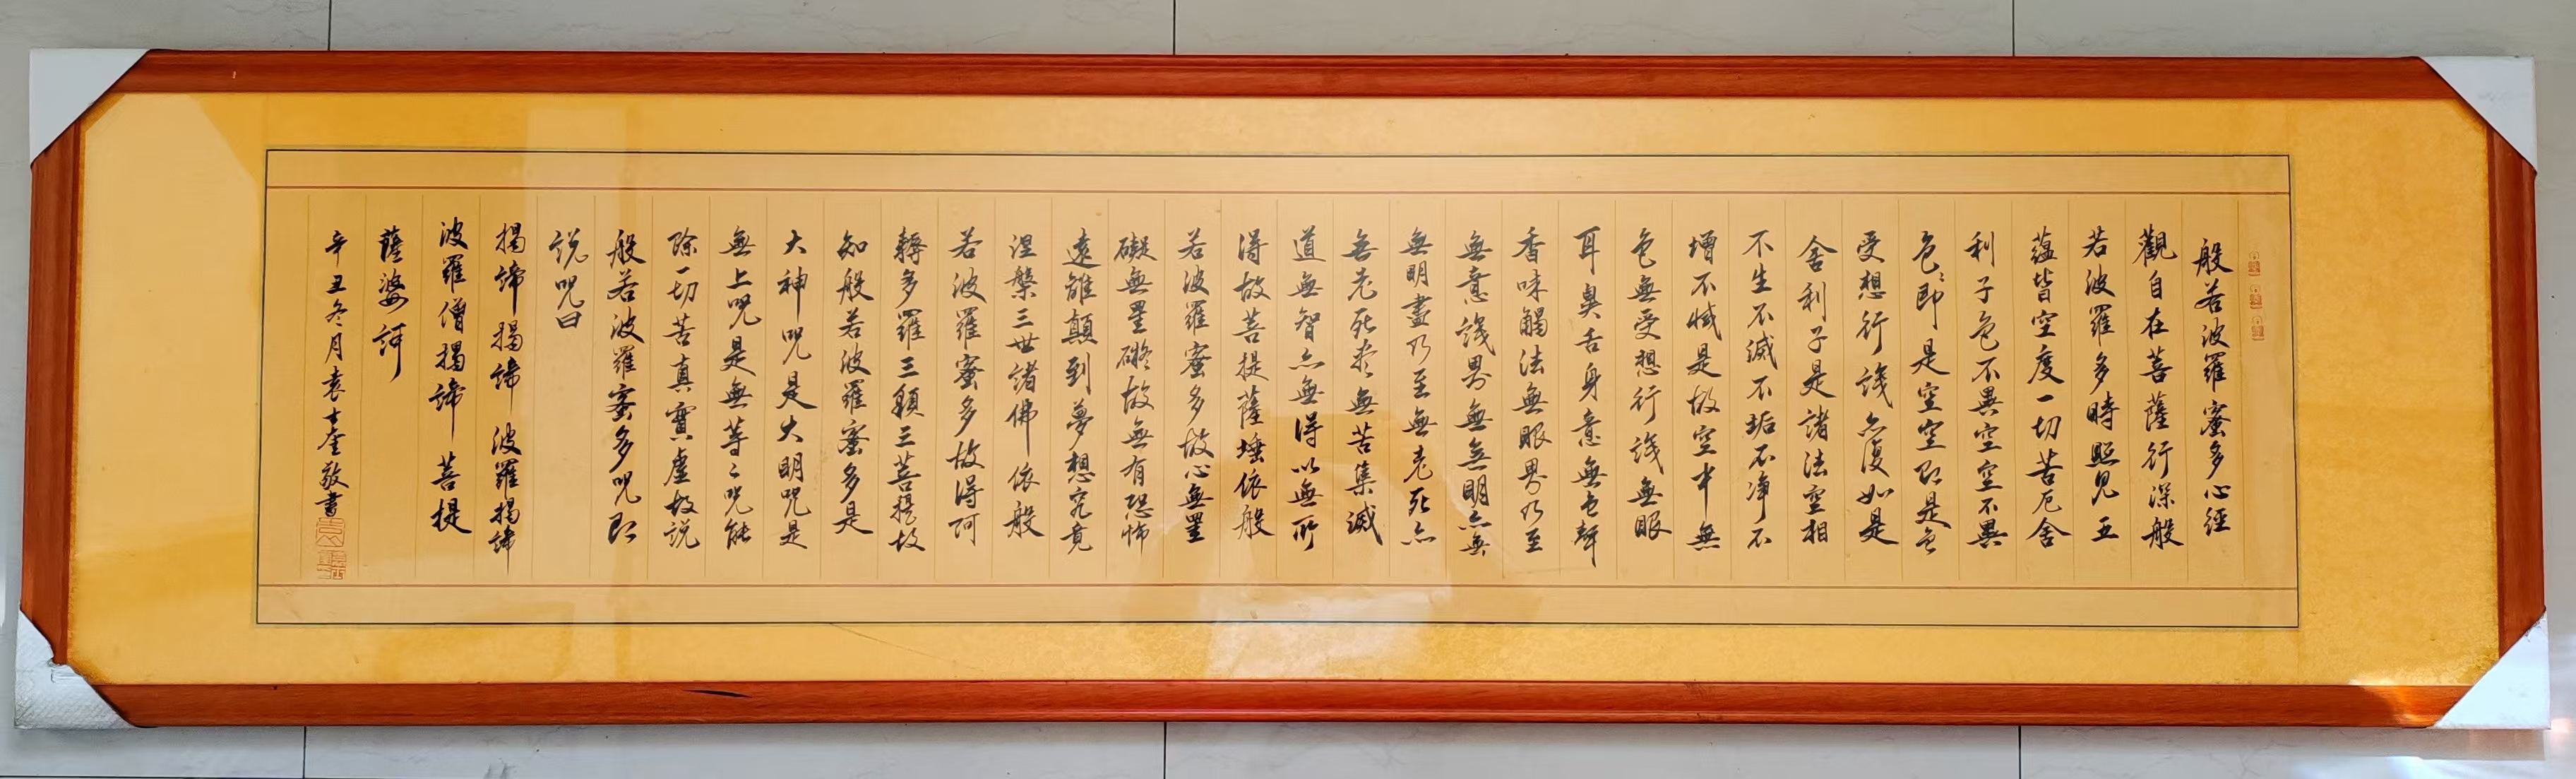 般若波羅蜜多心經
觀自在菩薩行深般
若波羅多時照見五
蘊皆空度一切苦厄舍
利子色不異空空不異
色〻即是空空即是色
受想行識亦復如是
舍利子是諸法空相
不生不滅不垢不净不
增不減是故空中無
色無受想行識無眼
耳鼻舌身意無色聲
香味觸法無眼界乃至
無意識界無無明亦無
無明盡乃至無老死亦
無老死盡無苦集滅
道無智亦無得以無所
得故菩提薩埵依般
若波羅蜜多故心無罣
礙無罣礙故無有恐怖
遠離顛到夢想究竟
涅槃三世諸佛依般
若波羅蜜多故得阿
耨多羅三藐三菩提故
知般若波羅蜜多是
大神咒是大明咒是
無上咒是無等〻咒能
除一切苦真實虛故説
般若波羅蜜多咒即
説咒曰
揭諦揭諦 波羅揭諦
波羅僧揭諦 菩提
薩婆訶
辛丑冬月袁士奎敬書